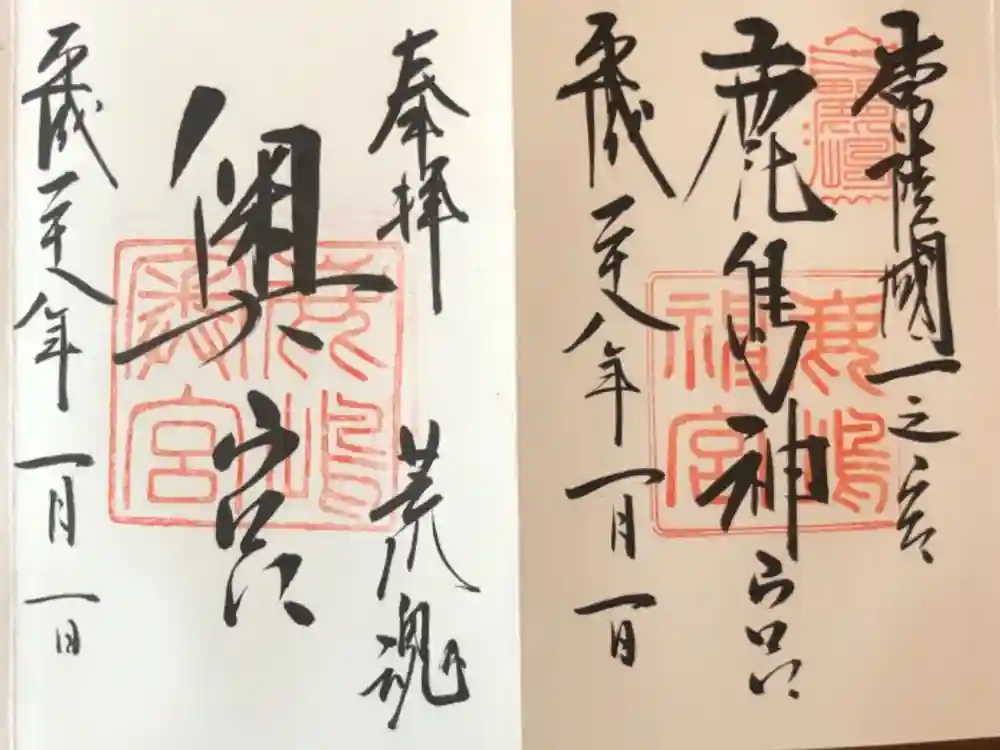 常陸國一之宮
鹿島神宮
平成二十八年一月一日
奉拝 荒魂
奥宮
平成二十八年一月一日
鹿嶋神宮
鹿嶋奥宮